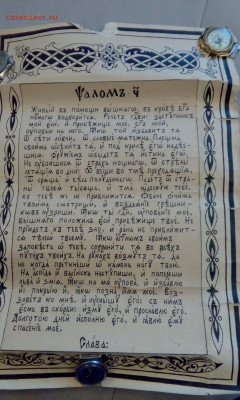 Ѱаломъ ч҃
Живый въ помощи вышнѧгѡ, въ кровѣ бг҃а
нб҃снагѡ водворитсѧ. Речетъ гд҃ви: заступникъ
мой єси, и прибѣжище моє, бг҃ъ мой,
и уповаю на него. Ꙗкѡ той избавитъ тѧ
ѿ сѣти ловчи, и ѿ словесе мѧтежна. Плещма
своима ѡсѣнитъ тѧ, и под крилѣ єгѡ надѣ-
ешисѧ: ѻружїемъ ѡбыдетъ тѧ истина єгѡ.
Не убоишисѧ ѿ страха нощнагѡ, ѿ стрѣлы
летѧщїѧ во дни: ѿ вещи во тмѣ преходѧщїѧ,
ѿ срѧща и бѣса полуденнагѡ. Падетъ ѿ стра-
ны твоеѧ тысѧща, и тма ѡдесную тебѣ,
къ тебѣ же не приближитсѧ. Ѻбаче ѻчима
твоима смотриши, и воздаѧнїе грѣшни-
кѡвъ узриши. Ꙗкѡ ты гд҃и, упованїе моє,
вышнѧго положилъ єси прибѣжище твоє. Не
прїидетъ къ тебѣ зло, и рана не приближит-
сѧ тѣлеси твоемꙋ. Ꙗкѡ агг҃лѡмъ своимъ
заповѣсть ѡ тебѣ, сохранити тѧ во всѣхъ
путехъ твоихъ. На рукахъ возмутъ тѧ, да
не когда преткнеши ѡ камень ногу твою.
На аспїда и васїлїска наступиши, и попереши
льва и змїѧ. Ꙗкѡ на мѧ упова, и избавлю
и: покрыю и, ꙗкѡ позна имѧ моє. Воз-
зоветъ ко мнѣ, и услышу єго: съ нимъ
єсмь въ скорби: изму єго, и прославлю єго.
Долготою дней исполню єго, и ꙗвлю ємꙋ
спасенїе моє.
Слава: